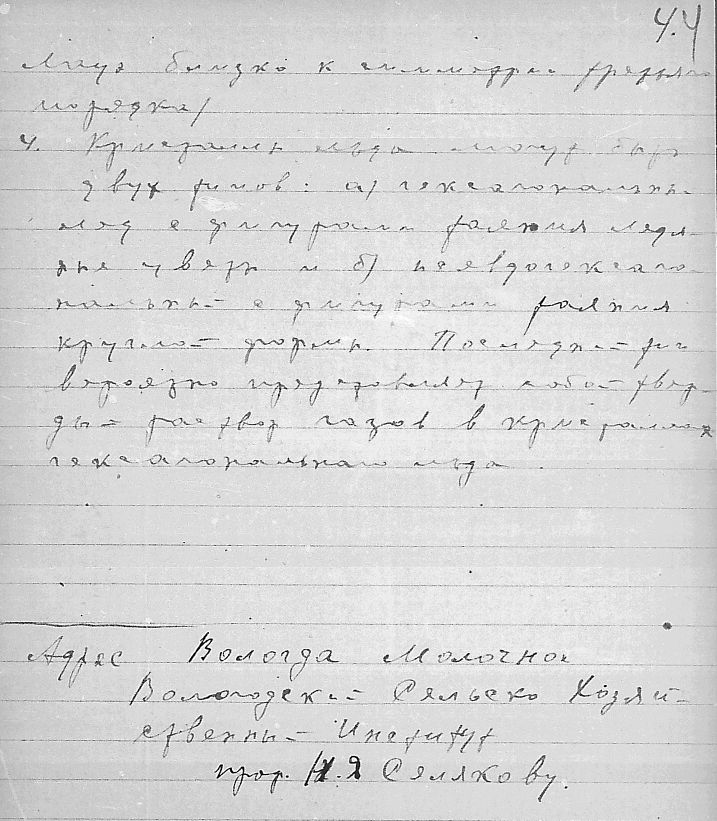 44
близко к симметрии третьяго
порядка/
4. Кристаллы льда могут быть
двух типов: а) гексагональны-
лед с фигурами таяния ледя-
ные цветы и б) псевдогексаго-
нальный с фигурами таяния
круглой формы. Последний тип
вероятно представляет собой твер-
дый раствор газов в кристаллах
гексагональнаго льда.
Адрес Вологда Молочное
Вологодский Сельско Хозяй-
ственный Институт
проф. Н.Я Селякову.